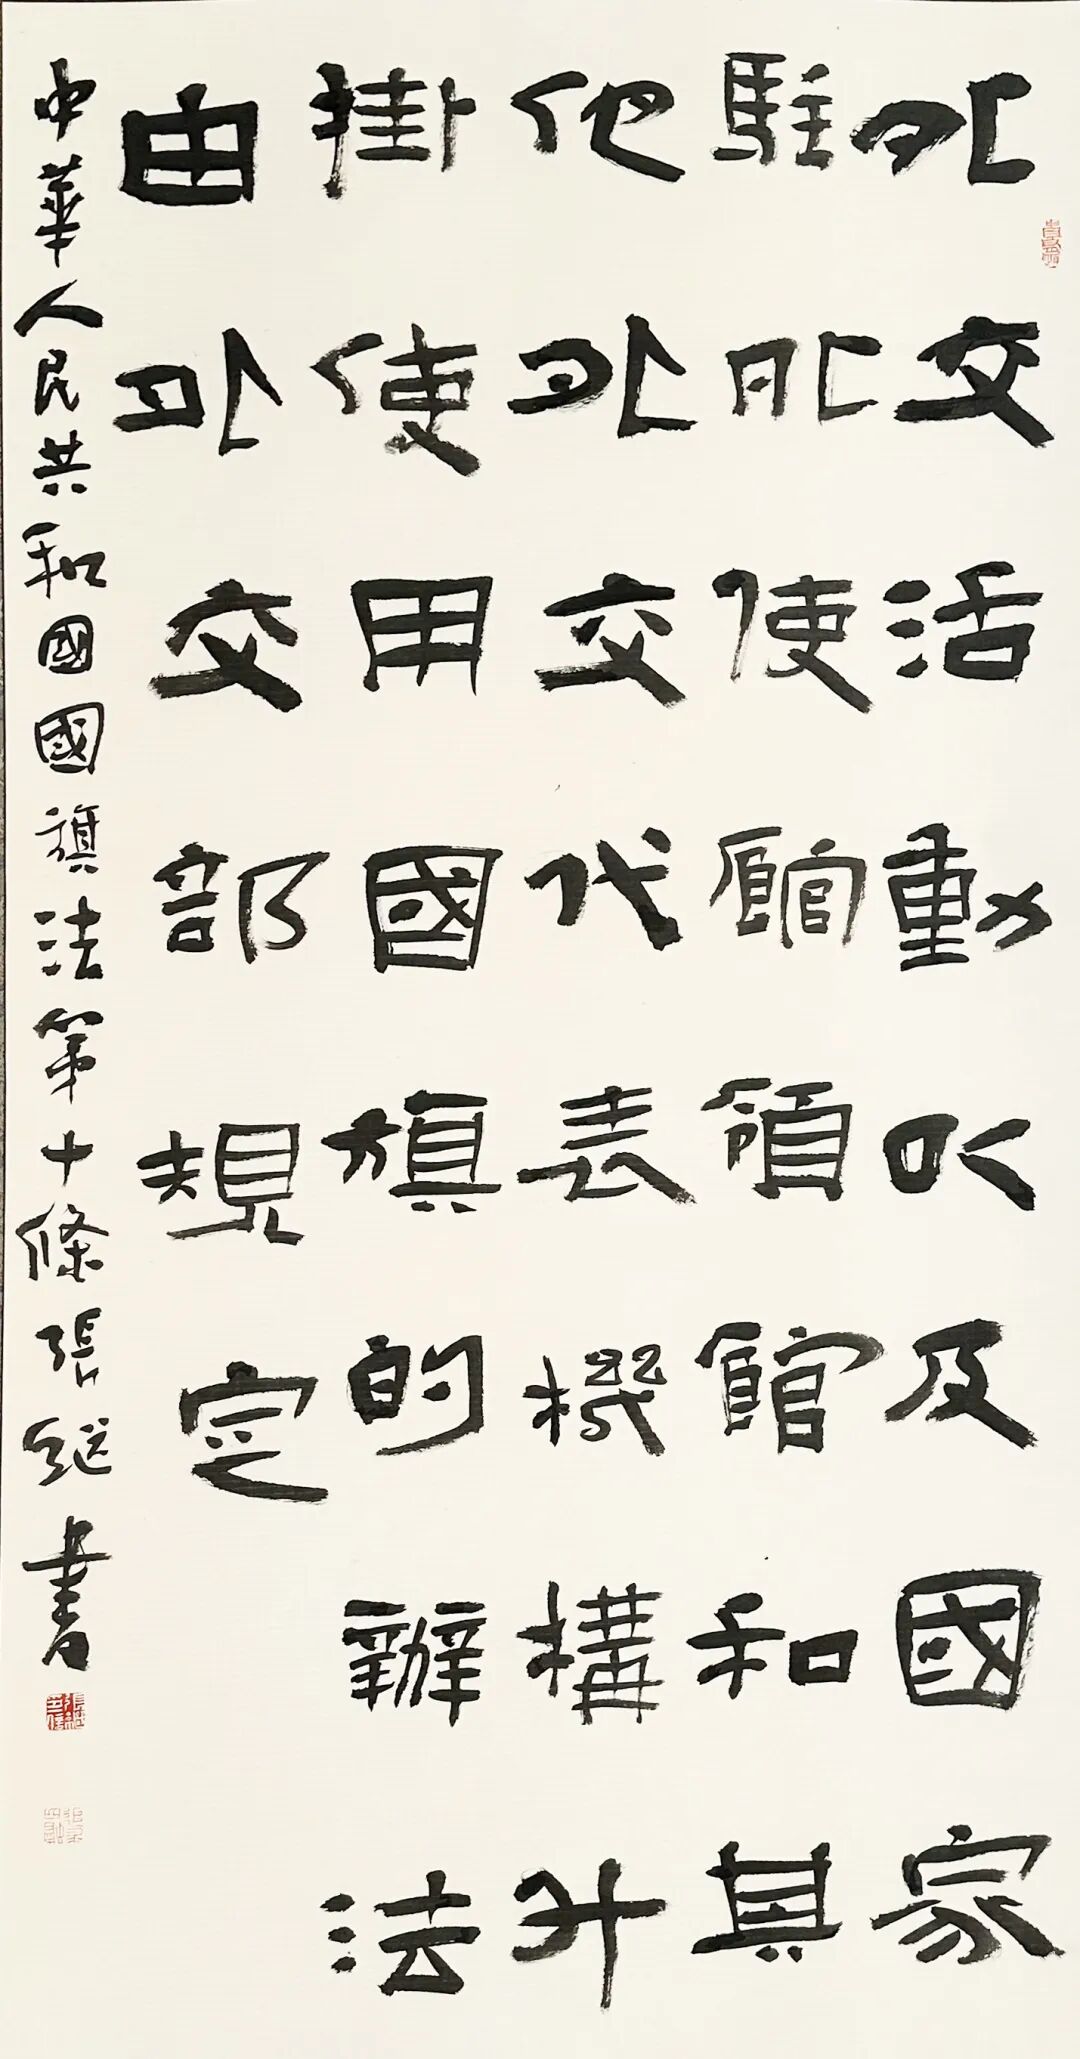 外交活動以及國家
駐外使館領館和其
他外交代表機構升
掛使用國旗的辦法
由外交部規定
中華人民共和國國旗法第十條張继書